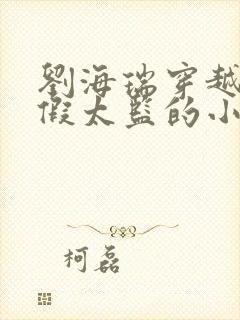 劉海瑞穿越
假太監的小
柯磊